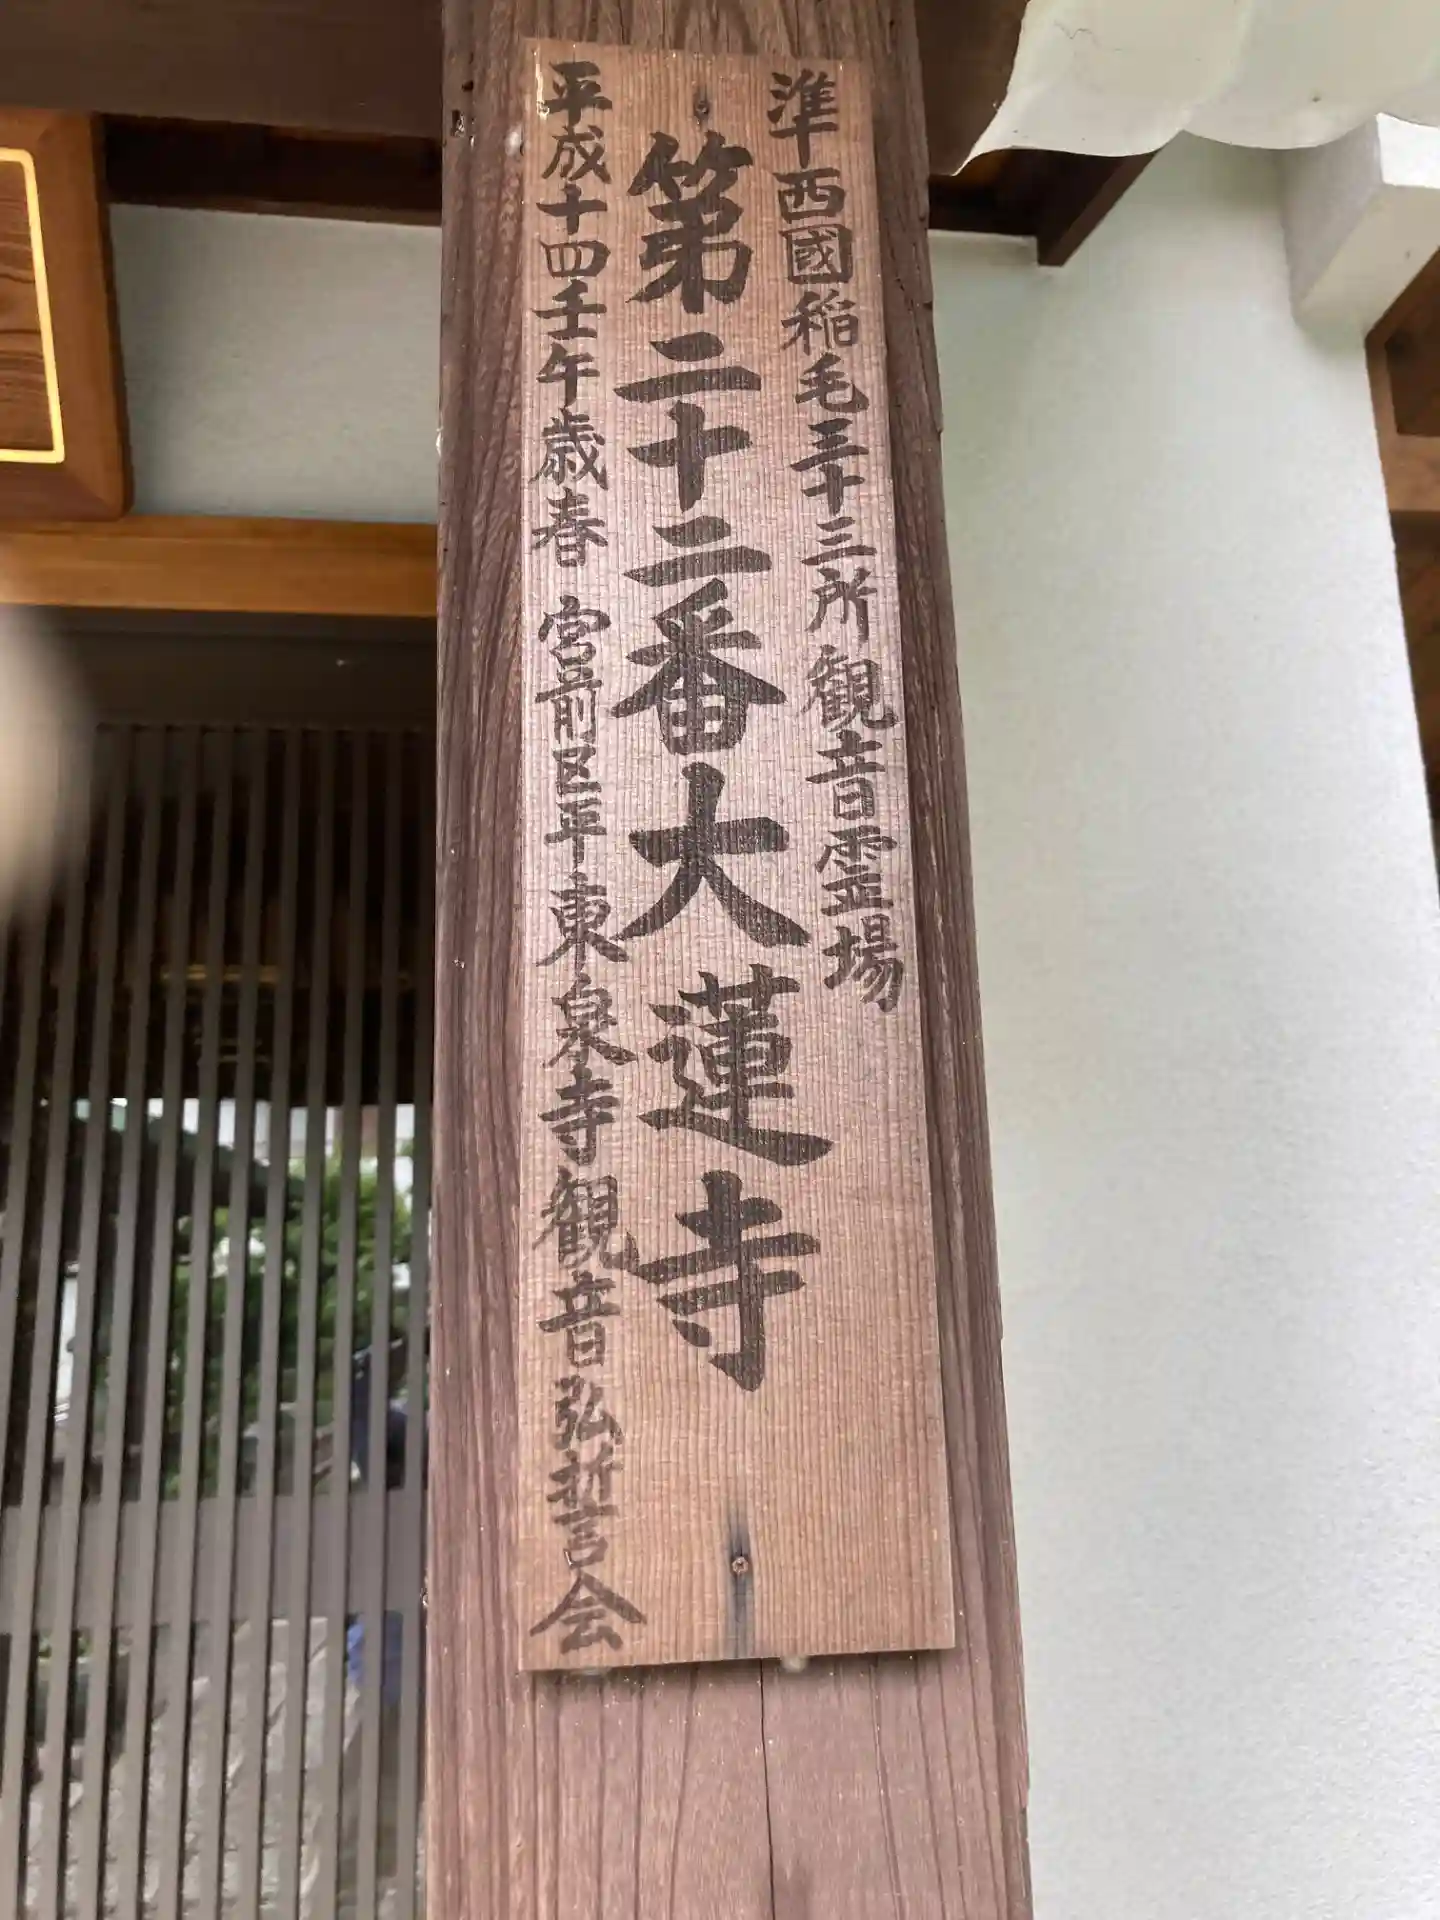 準西國稲毛三十三所観音霊場
第二十二番大蓮寺
平成十四壬午歳春 宮前区平東泉寺観音弘誓会